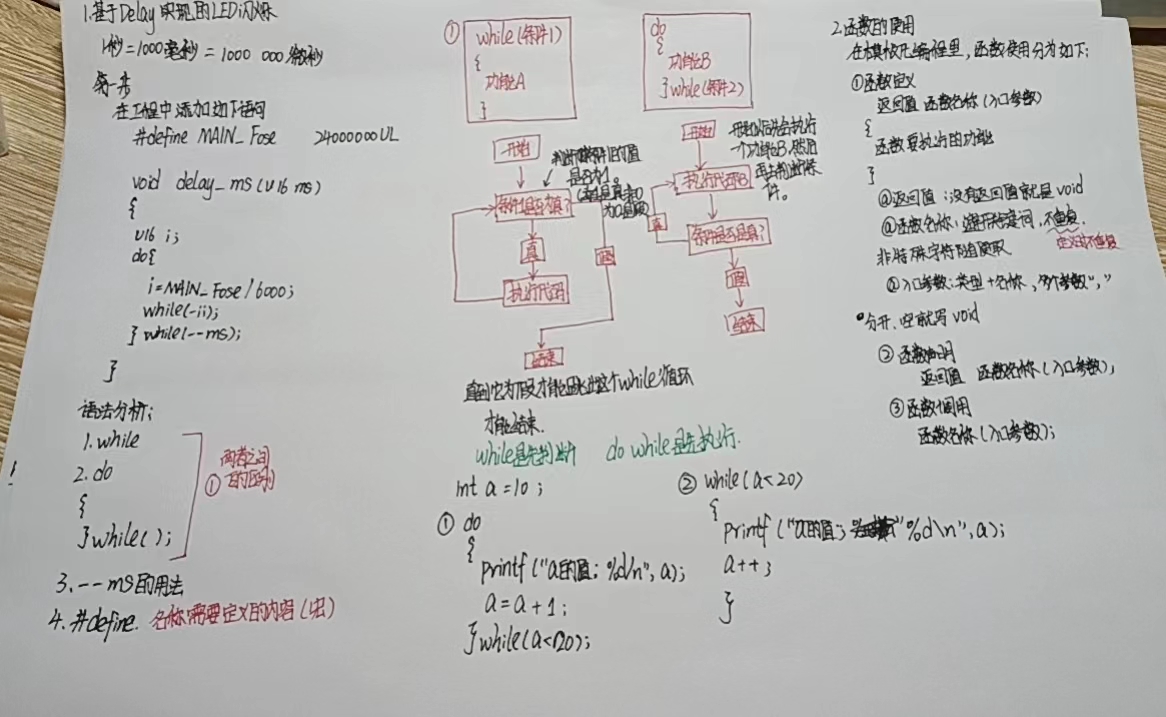 1.基于Delay实现的LED闪烁
1秒=1000毫秒=1000 000微秒
第一步
在工程中添加如下语句
#define MAIN_Fose 24000000UL
void delay_ms(u16 ms)
{
u16 i;
do{
i=MAIN_Fose/6000;
while(-ii);
}while(--ms);
}
语法分析;
1.while
2.do
{
}while();
两者之间
①的区别
3.--ms的用法
4.#define.名称需要定义的内容(宏)
①
while(条件1)
{
功能A
}
do
{
功能B
}while(条件2)
开始
判断条件1的值
是否为1。
条件1是否为真?
真
假
执行代码
结束
开始
开始以后先会执行
一个功能B,然后
再去判断条
件。
执行代码B
真
条件是否是真?
假
结束
直到它为假才能跳出这个while循环
才能结束.
while是先判断 do while是先执行.
int a=10;
① do
{
printf("a的值:%d\n",a);
a=a+1;
}while(a<20);
② while(a<20)
{
printf("a的值; "%d\n",a);
a++;
}
2.函数的使用
在模块化编程里,函数使用分为如下:
①函数定义
返回值 函数名称(入口参数)
{
函数要执行的功能
}
@返回值:没有返回值就是void
@函数名称: 不重复.
定义的不重复
非特殊字符随便取
@入口参数:类型+名称,多个参数","
分开、空就写void
②函数声明
返回值 函数名称(入口参数),
③函数调用
函数名称(入口参数);